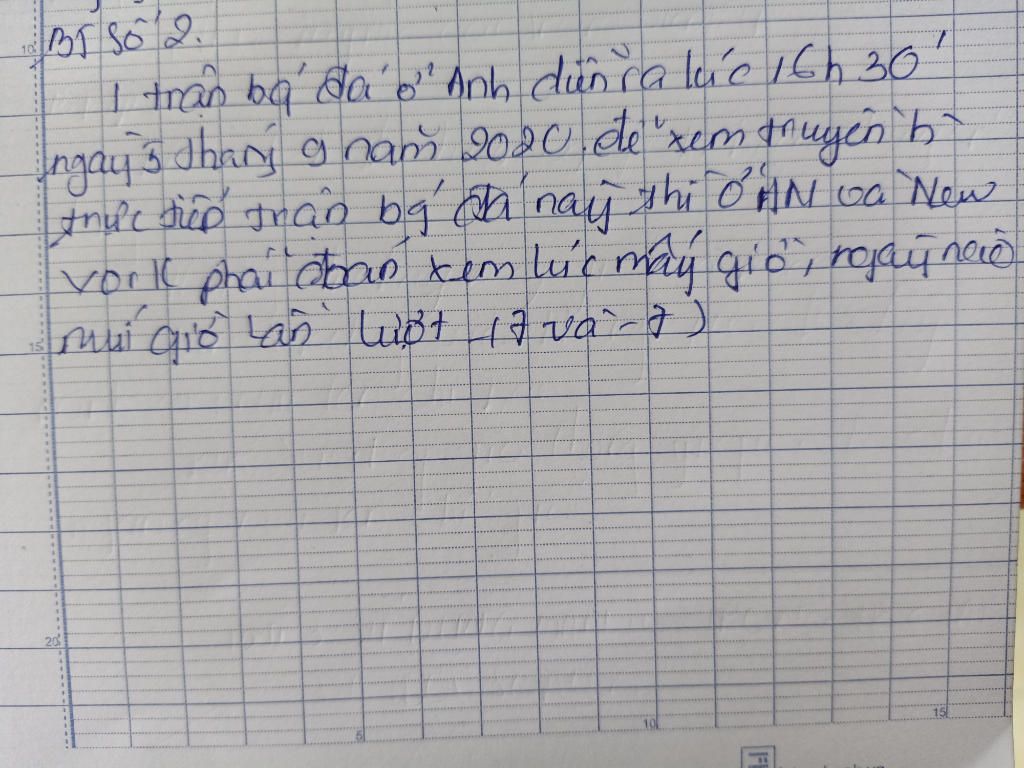 BT Số 2.
1 trận bá đá ở Anh diễn ra lúc 16h 30'
ngày 3 tháng 9 năm 2020. để xem truyền h
trực tiếp trận bá đá này thì ở HN và New
York phải đoán xem lúc mấy giờ, ngày nào
múi giờ lần lượt (7 và -7)
10
15
20
5
10
15